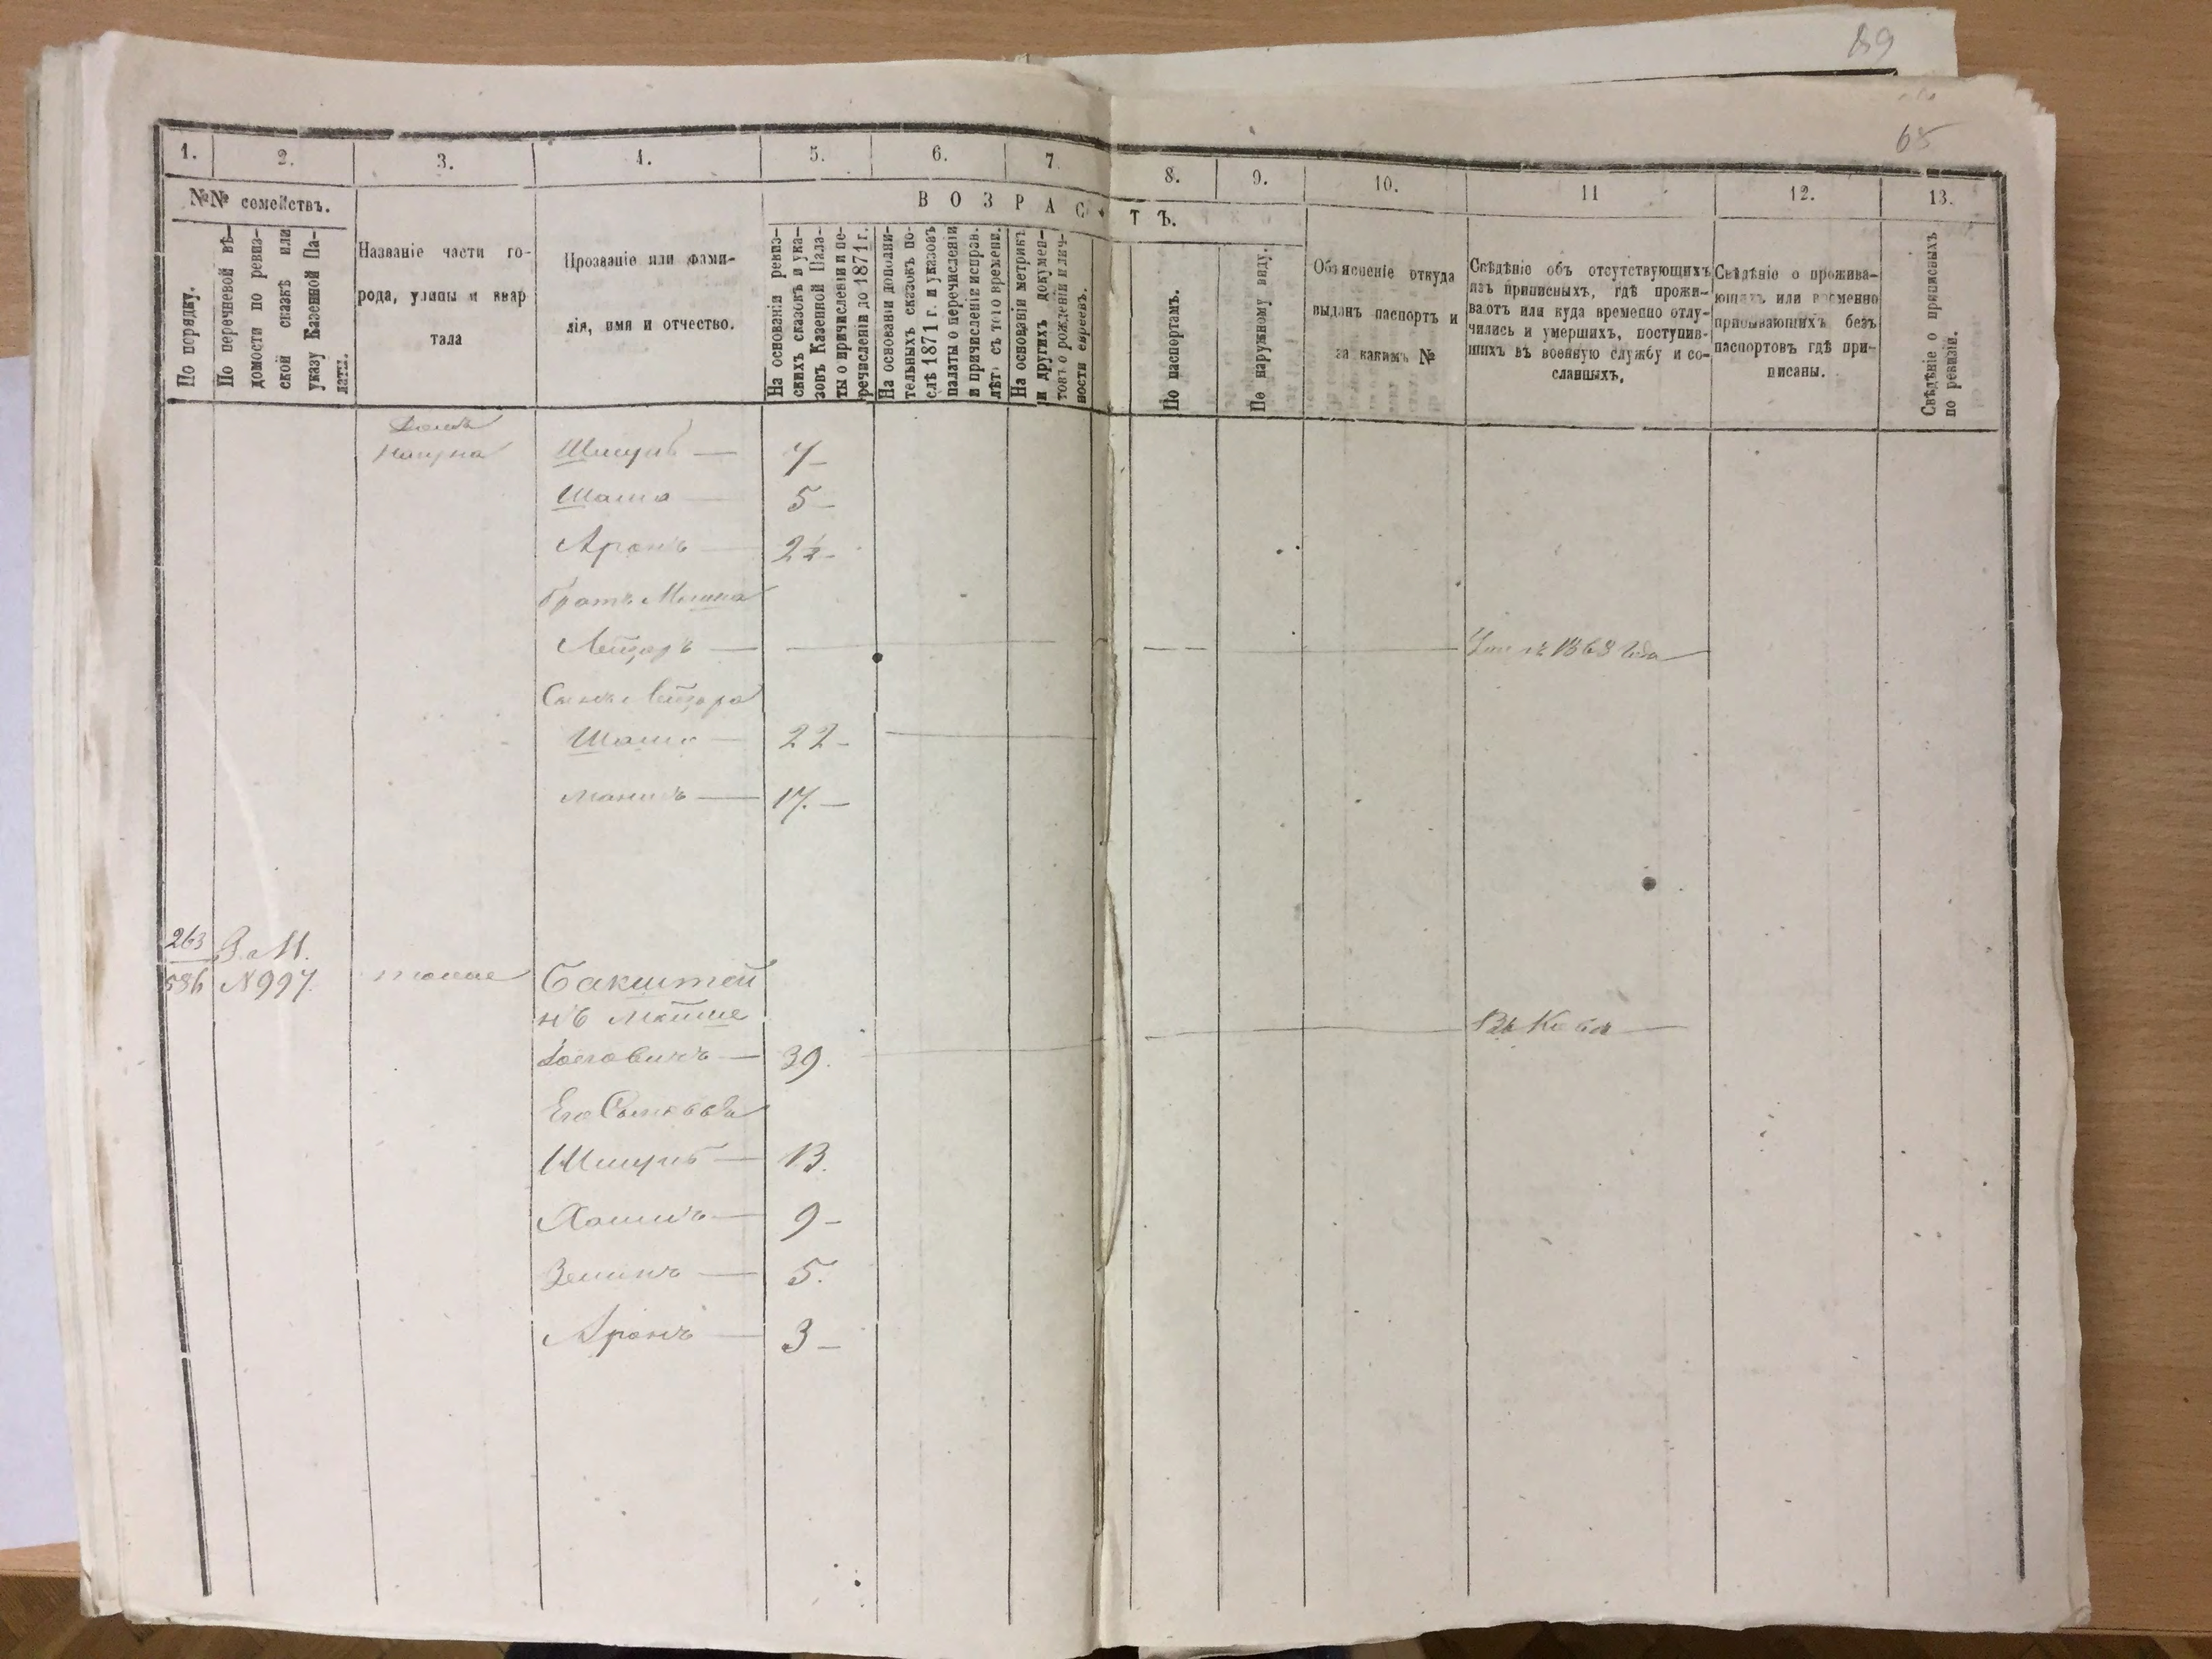 89
65
1.
2.
3.
4.
5.
6.
7.
8.
9.
10.
11
12.
13.
№№ семействъ.
По порядку.
По перечневой вѣ-
домости по ревиз-
ской сказкѣ или
указу Казенной Па-
латы.
Названіе части го-
рода, улицы и квар
тала
Прозваніе или фами-
лія, имя и отчество.
ВОЗРАСТЪ.
На основаніи ревиз-
скихъ сказокъ и ука-
зовъ Казенной Пала-
ты о причисленіи и пе-
речисленіи до 1871 г.
На основаніи дополни-
тельныхъ сказокъ по-
слѣ 1871 г. и указовъ
палаты о перечисленіи
и причисленіи исправ.
лѣтъ съ того времени.
На основаніи метрик.
и другихъ докумен-
товъ о рожденіи и лич-
ности евреевъ.
По паспортамъ.
По наружному виду.
Объясненіе откуда
выданъ паспортъ и
за какимъ №
Свѣдѣніе объ отсутствующихъ
изъ приписныхъ, гдѣ прожи-
ваютъ или куда временно отлу-
чились и умершихъ, поступив-
шихъ въ военную службу и со-
сланныхъ,
Свѣдѣніе о прожива-
ющихъ или временно
прибывающихъ безъ
паспортовъ гдѣ при-
писаны.
Свѣдѣніе о приписныхъ
по ревизіи.
Шмуль — 7 –
5 –
Аронъ — 2½ –
братъ
Лейзаръ —
1868 года
Сынъ Лейзара
22 –
17. –
263
586
Р. М.
№ 997.
тоже
Бакштей
нъ
39.
Въ
Его Сыновья
Шмуль — 13.
Хаимъ — 9 –
5.
Аронъ — 3 –